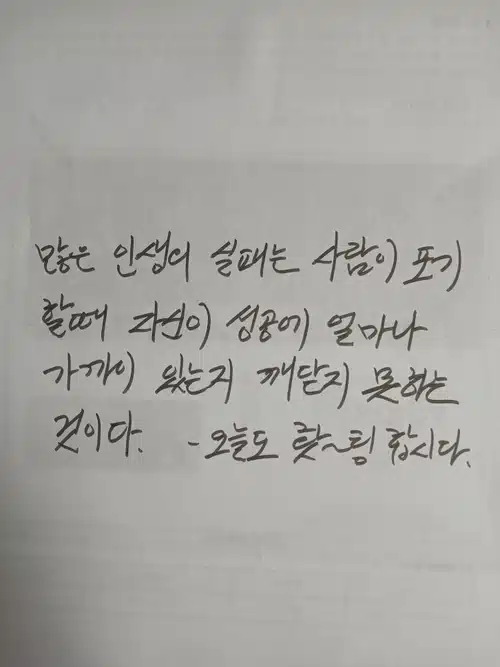 많은 인생의 실패는 사람이 포기
할때 자신이 성공에 얼마나
가까이 있는지 깨닫지 못하는
것이다. - 오늘도 홧~팅 합시다.